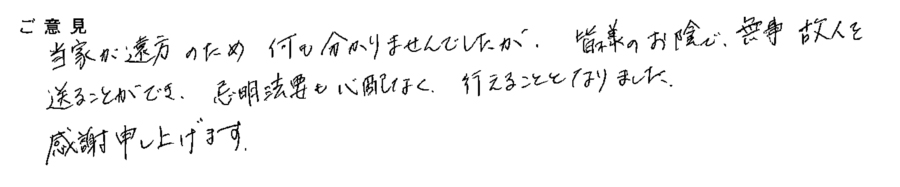 ご意見
当家が遠方のため 何も分かりませんでしたが、皆様のお陰で、無事 故人を
送ることができ、忌明法要も心配なく、行えることとなりました。
感謝申し上げます。